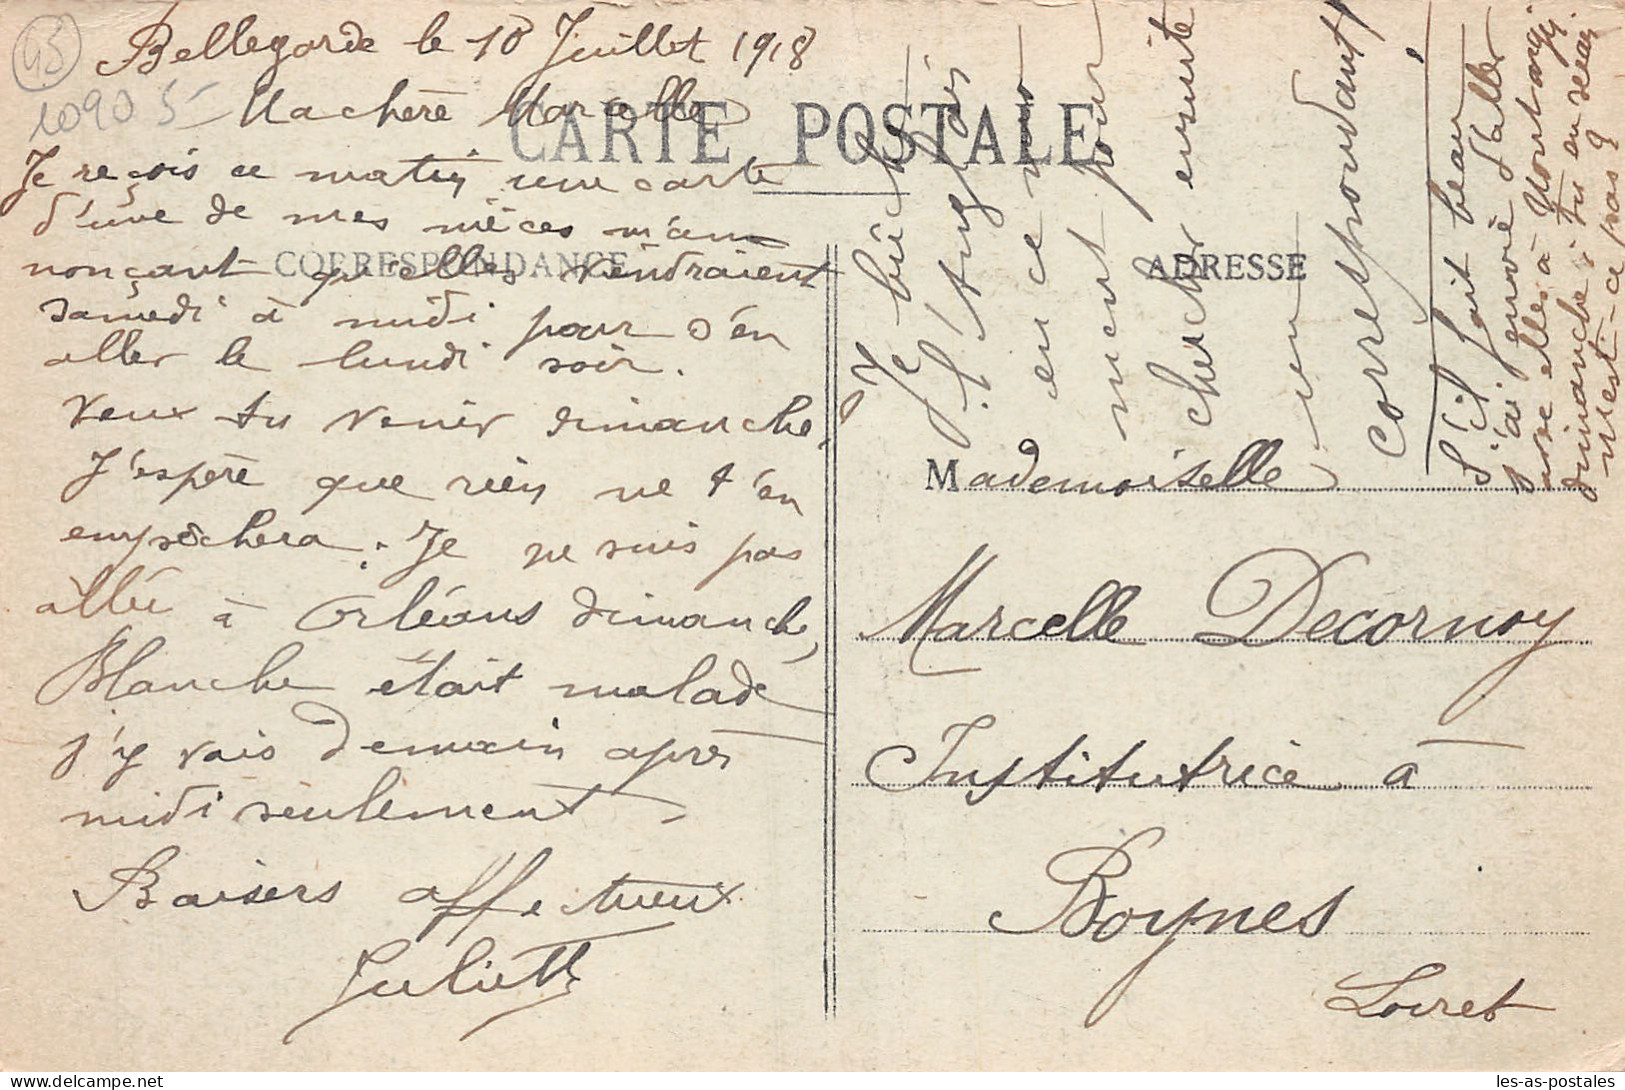 45
10905
Bellegarde le 10 Juillet 1918
CARTE POSTALE
Ma chère Marcelle
Je reçois ce matin une carte
d'une de mes nièces m'an
CORRESPONDANCE
nonçant qu'elles viendraient
samedi à midi pour s'en
aller le lundi soir.
Veux tu venir dimanche.
J'espère que rien ne t'en
empêchera. Je ne suis pas
allée à Orléans dimanche,
Blanche était malade
j'y vais demain après
midi seulement
Baisers affectueux
Juliette
ADRESSE
Mademoiselle
Marcelle Decornoy
Institutrice à
Boynes
Loiret
Je bûche
l'Anglais
en ce mo
ment pour
chercher ensuite
un
correspondant!
S'il fait beau
j'ai envie d'aller
avec elles à Montargis
dimanche; tu en seras
n'est-ce pas?
les-as-postales.com